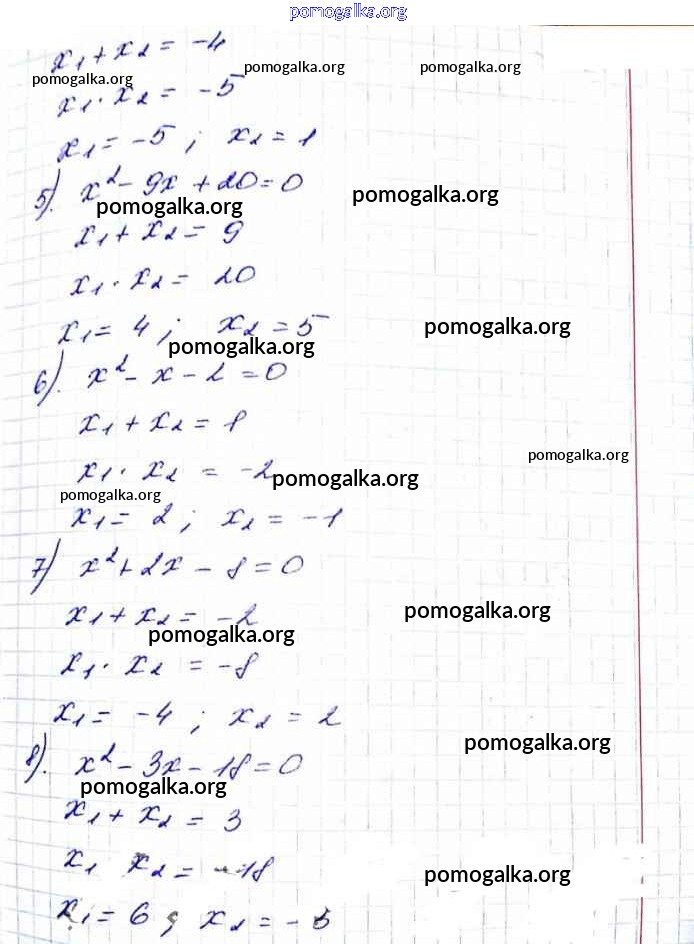 pomogalka.org
x₁ + x₂ = -4
pomogalka.org pomogalka.org pomogalka.org
x₁ · x₂ = -5
x₁ = -5 ; x₂ = 1
5). x² - 9x + 20 = 0
pomogalka.org pomogalka.org
x₁ + x₂ = 9
x₁ · x₂ = 20
x₁ = 4 ; x₂ = 5
pomogalka.org pomogalka.org
6). x² - x - 2 = 0
x₁ + x₂ = 1
x₁ · x₂ = -2
pomogalka.org pomogalka.org
pomogalka.org
x₁ = 2 ; x₂ = -1
7) x² + 2x - 8 = 0
x₁ + x₂ = -2
pomogalka.org pomogalka.org
x₁ · x₂ = -8
x₁ = -4 ; x₂ = 2
8). x² - 3x - 18 = 0
pomogalka.org pomogalka.org
x₁ + x₂ = 3
x₁ x₂ = -18
pomogalka.org
x₁ = 6 ; x₂ = -